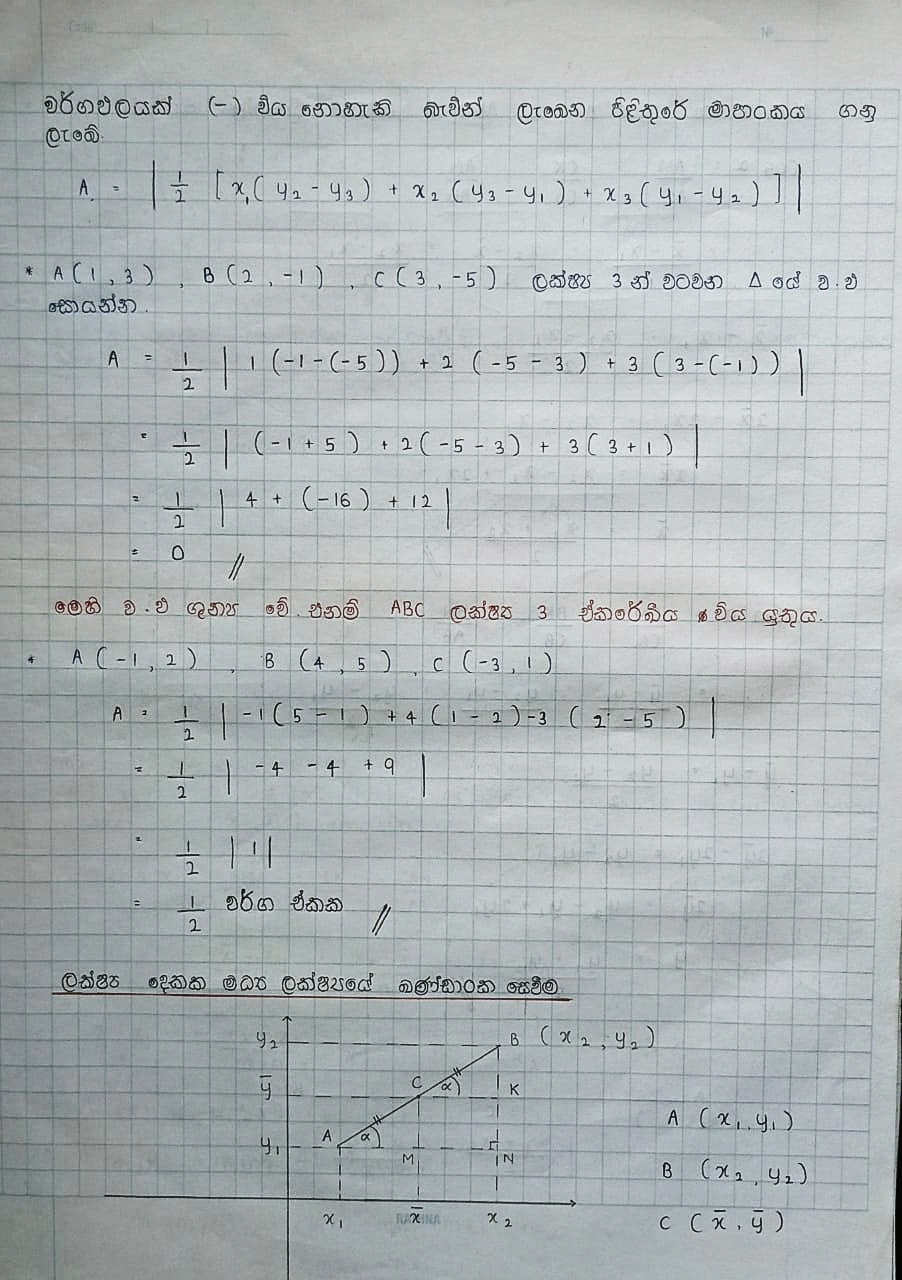 වර්ගඵලයක් (-) විය නොහැකි බැවින් ලැබෙන පිළිතුරේ මාපාංකය ගනු
ලැබේ.
A = | 1/2 [x₁(y₂ - y₃) + x₂(y₃ - y₁) + x₃(y₁ - y₂)] |
* A(1, 3), B(2, -1), C(3, -5) ලක්ෂ්‍ය 3 න් වටවන Δ යේ ව.ඵ
සොයන්න.
A = 1/2 | 1(-1-(-5)) + 2(-5 - 3) + 3(3-(-1)) |
= 1/2 | (-1 + 5) + 2(-5 - 3) + 3(3 + 1) |
= 1/2 | 4 + (-16) + 12 |
= 0 //
මෙහි ව.ඵ ශුන්‍ය වේ. එනම් ABC ලක්ෂ්‍ය 3 ඒකරේඛීය විය යුතුය.
* A(-1, 2), B(4, 5), C(-3, 1)
A = 1/2 | -1(5 - 1) + 4(1 - 2) -3(2 - 5) |
= 1/2 | -4 - 4 + 9 |
= 1/2 |1|
= 1/2 වර්ග ඒකක //
ලක්ෂ්‍ය දෙකක මධ්‍ය ලක්ෂ්‍යයේ ඛණ්ඩාංක සෙවීම
y₂ B (x₂, y₂)
ȳ C α K
A (x₁, y₁)
y₁ A α M N
B (x₂, y₂)
x₁ x̄ x₂
C (x̄, ȳ)